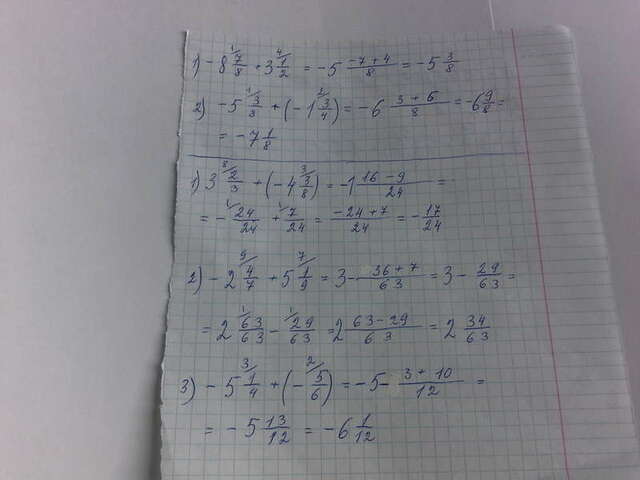 1) - 8 7/8 + 3 1/2 = -5 (-7+4)/8 = -5 3/8
2) -5 3/8 + (-1 3/4) = -6 (3+6)/8 = -6 9/8 =
= -7 1/8
1) 3 2/3 + (-4 3/8) = -1 (16-9)/24 =
= - 24/24 + 7/24 = (-24+7)/24 = - 17/24
2) - 2 4/7 + 5 1/9 = 3 - (36+7)/63 = 3 - 29/63 =
= 2 63/63 - 29/63 = 2 (63-29)/63 = 2 34/63
3) - 5 1/4 + (- 5/6) = -5 - (3+10)/12 =
= -5 13/12 = -6 1/12